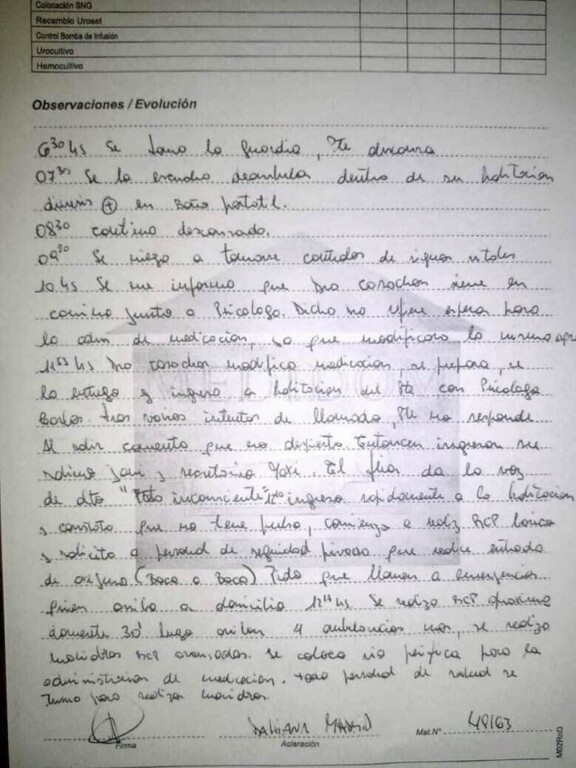 Colocación SNG
Recambio Uroset
Control Bomba de Infusión
Urocultivo
Hemocultivo
Observaciones / Evolución
6³⁰ hs Se tomo la guardia, Pte descansa
07³⁰ Se la escucha deambular dentro de su habitacion
diuresis (+) en baño portatil.
08³⁰ continua descansando.
09³⁰ Se niega a tomarse controles de signos vitales
10 hs Se me informa que Dra cosachov viene en
camino junto a Psicologo. Dicha me refiere esperar para
la adm de medicacion, ya que modificara la misma
hs Dra cosachov modifica medicacion, se prepara, se
la entrego y ingresa a habitacion del Pte con Psicologo
tras varios intentos de llamado, Pte no responde
Al salir comenta que no desperto. Entonces ingresan su
sobrino y secretario Maxi. El da la voz
de alto "Esta inconsciente" ingreso rapidamente a la habitacion
y constato que no tiene pulso, comienzo a realiz RCP basico
y solicito a personal de seguridad privada que realice entrada
de oxigeno (Boca a Boca) Pido que llamen a emergencias
quien arriba a domicilio hs. Se realiza RCP aproxima
damente 30' luego arriban 4 ambulancias mas, se realiza
maniobras RCP avanzadas. Se coloca via periferica para la
administracion de medicacion. todo personal de salud se
turno para realizar maniobras.
Firma
Aclaración
Mat.N°
M02RnD